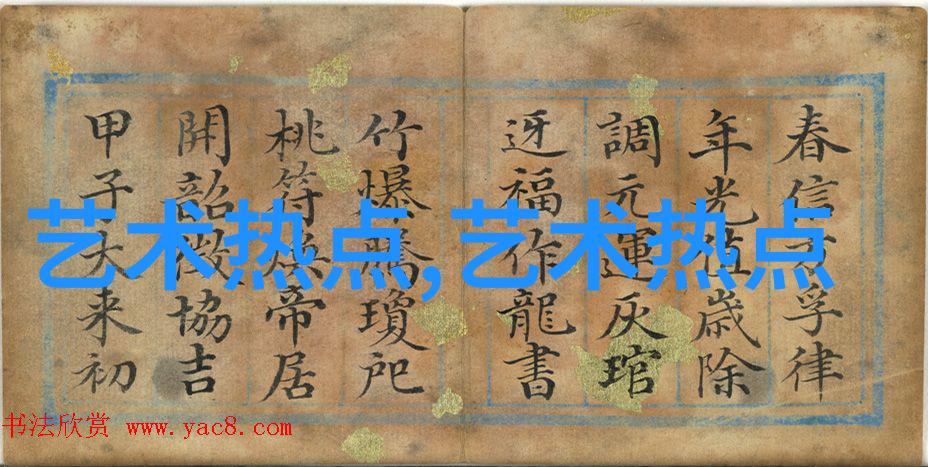 春信孚律
年光值歲除
調元運灰琯
迓福作龍書
竹爆騰瓊
桃符煥帝居
開韶徵協吉
甲子大来初
艺术热点,艺术热点
书法欣赏 www.yac8.com